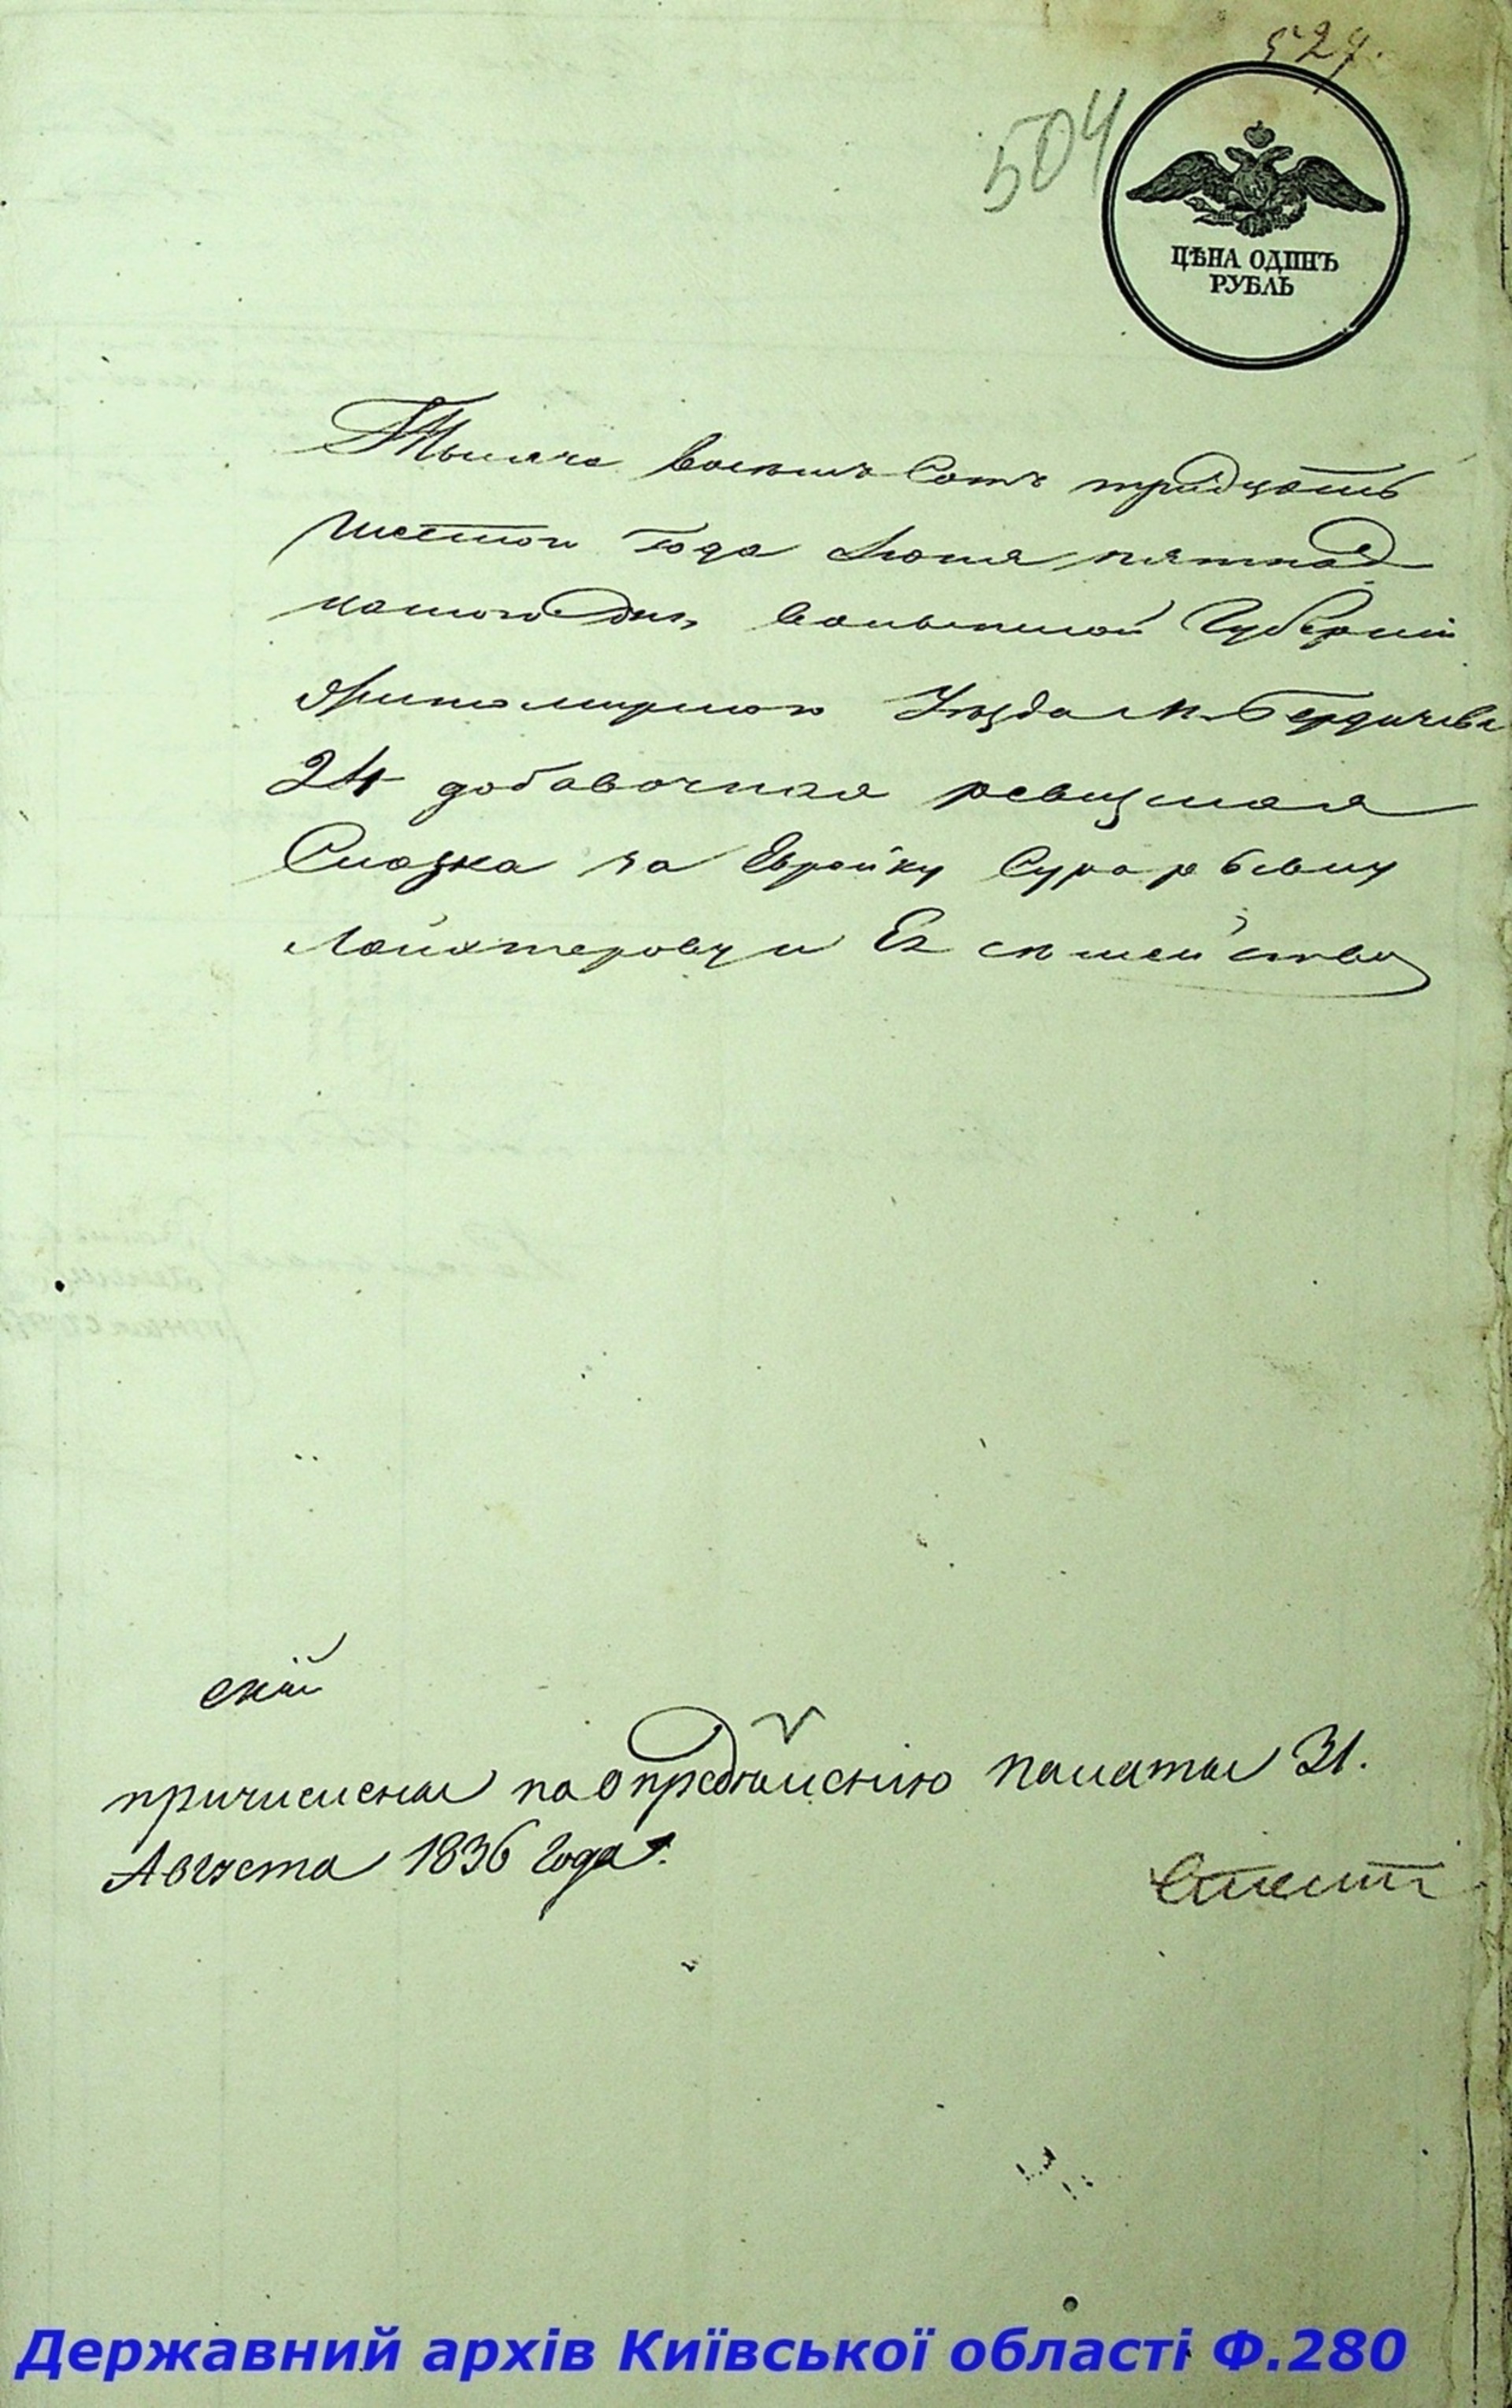 527.
504
ЦѢНА ОДИНЪ
РУБЛЬ
Тысяча восемь Сотъ тридцать
шестого Года Июня пятнад
цатого дня Волынской Губерніи
Житомирского Уѣзда М. Бердичева
24 добавочная ревизская
Сказка за Еврейку Сура
Лайхтерову и Ее семейство
скій
причислены по опредѣленію палаты 31.
Августа 1836 Года.
Державний архів Київської області Ф.280